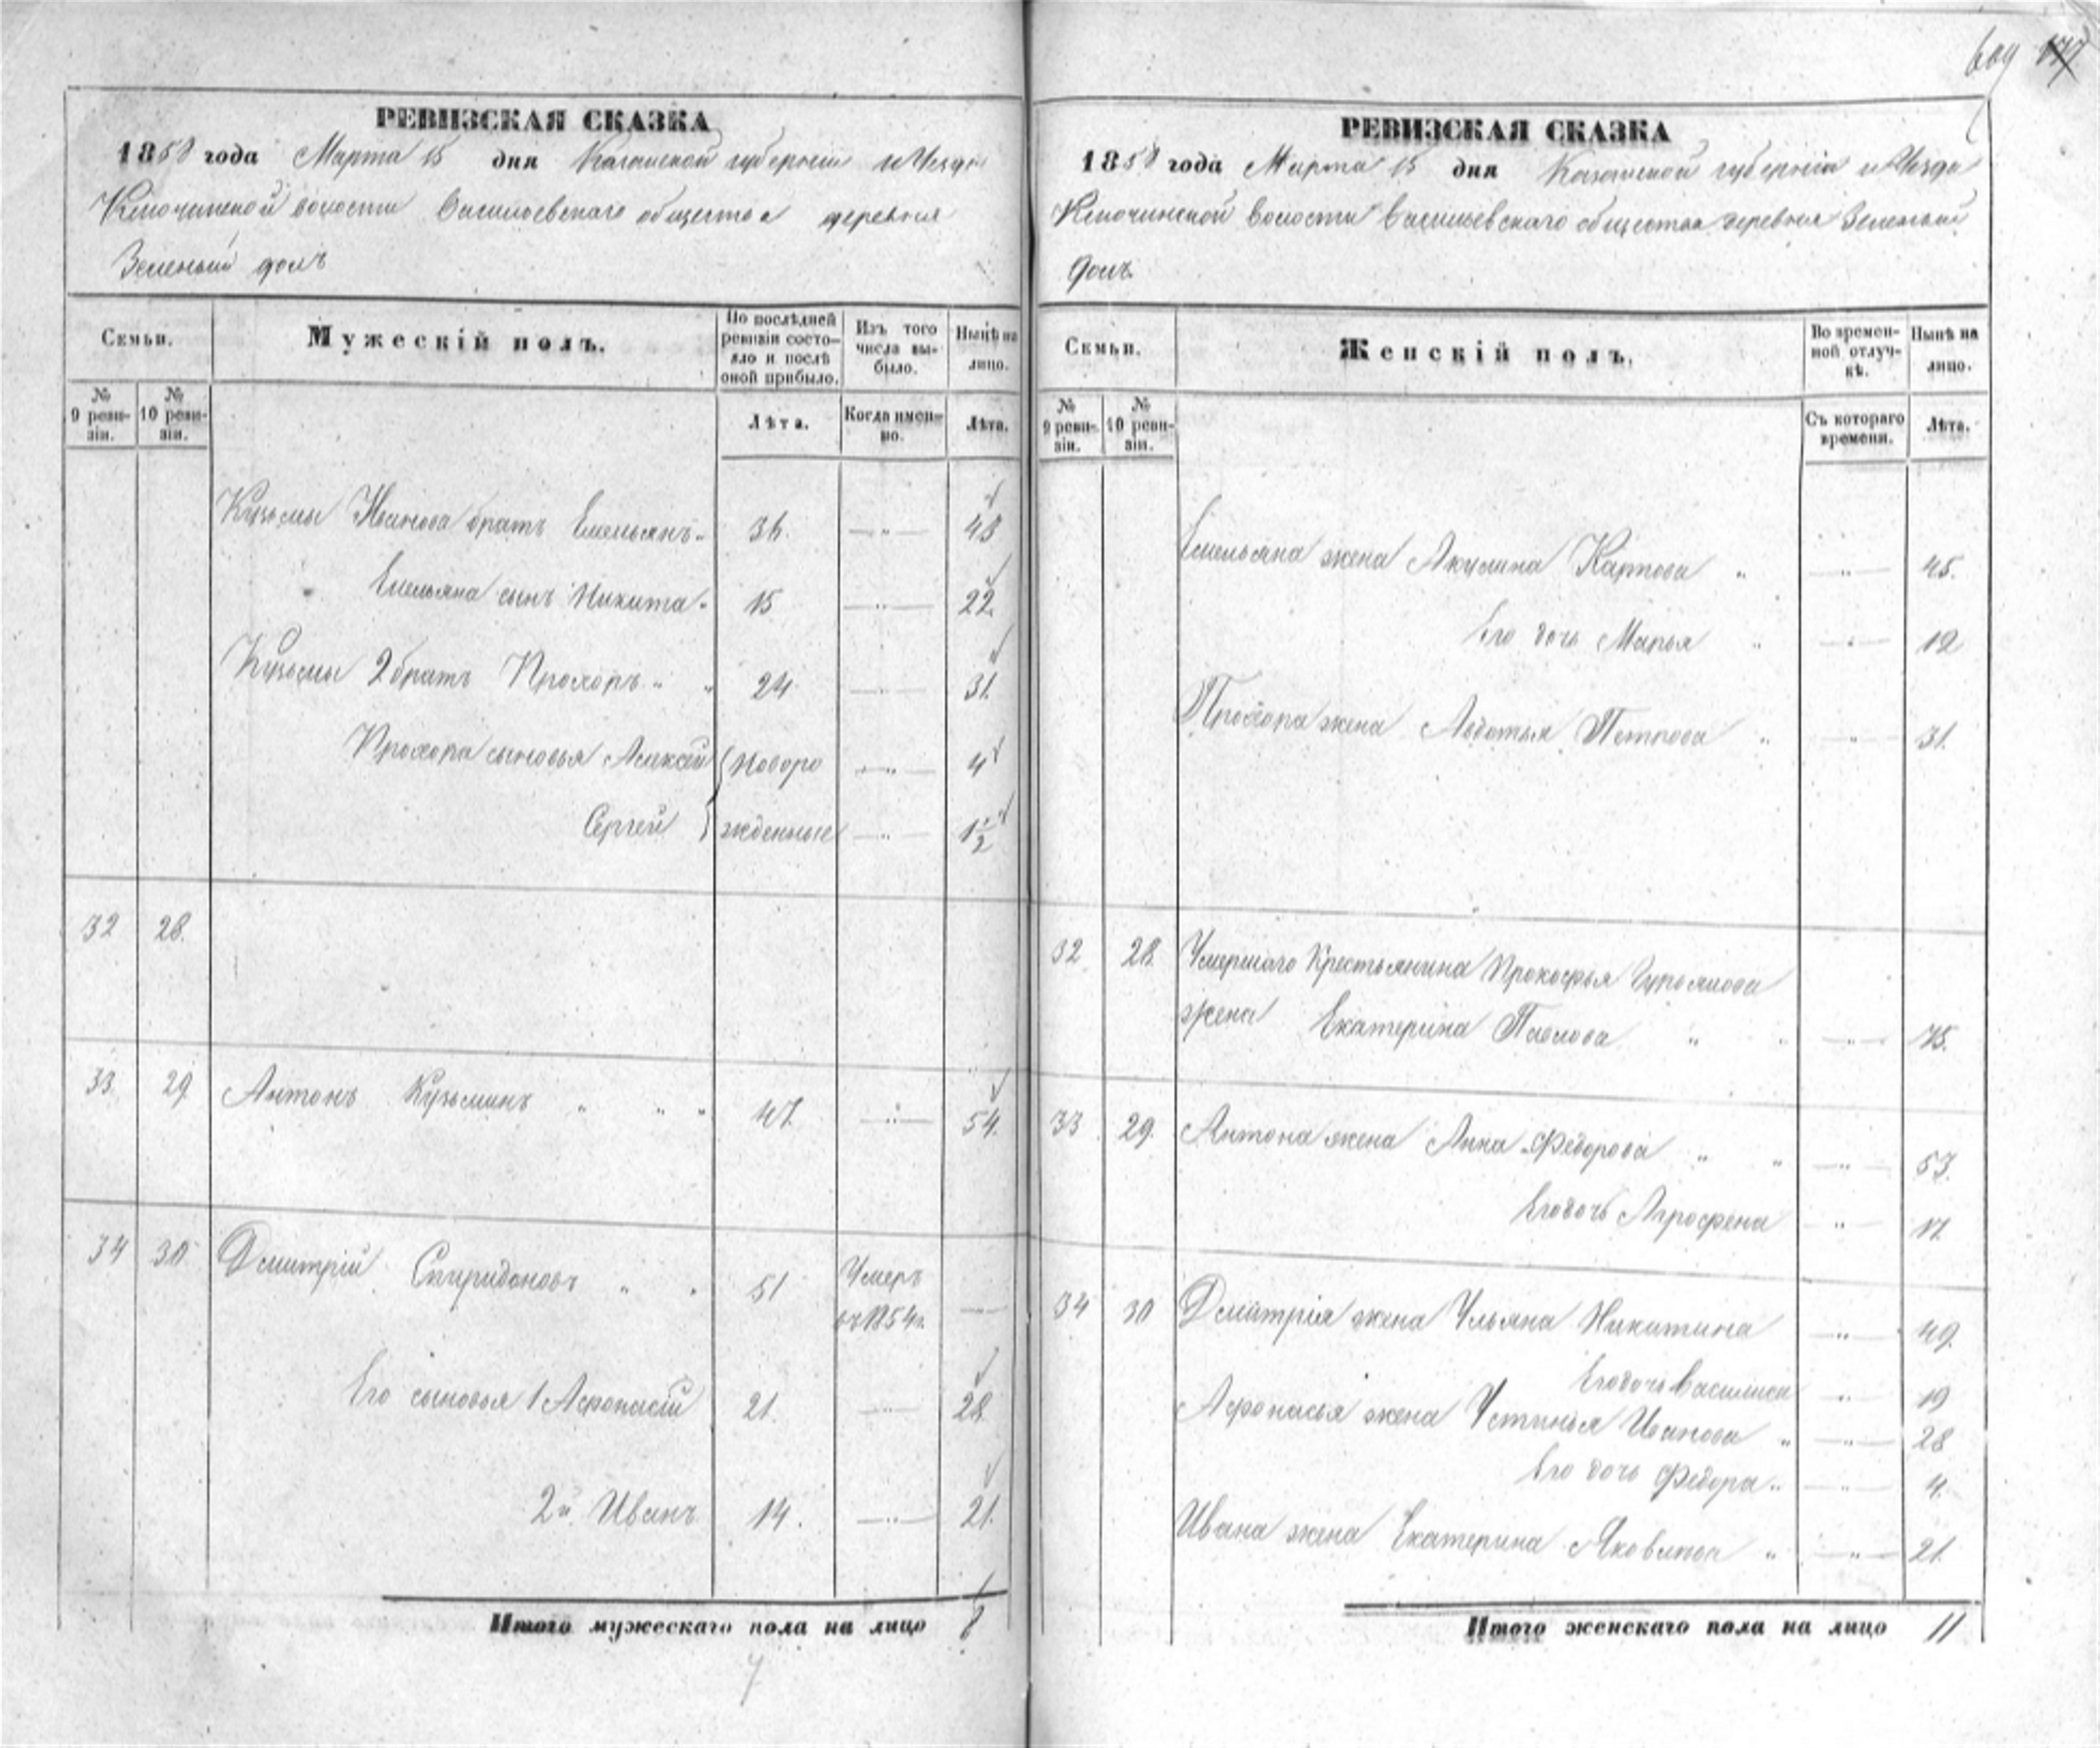 609
РЕВИЗСКАЯ СКАЗКА
1858 года Марта 15 дня Казанской губернии и Уезда
Ключинской волости Васильевскаго общества деревня
Зеленый долъ
Семьи.
Мужескій полъ.
По послѣдней ревизіи состояло и послѣ оной прибыло.
Изъ того числа выбыло.
Нынѣ на лицо.
№ 9 ревизіи.
№ 10 ревизіи.
Лѣта.
Когда именно.
Лѣта.
Кузьмы Иванова братъ Емельянъ 36. — " — 43
Емельяна сынъ Никита 15 — " — 22.
Кузьмы 2 братъ Прохоръ " " 24 — " — 31.
Прохора сыновья Алексей { новоро — " — 4
Сергей } жденные — " — 1 1/2
32 28.
33. 29. Антонъ Кузьминъ " " " 47. — " — 54.
34 30 Дмитрій Спиридоновъ " " 51 Умеръ
въ 1854 г. —
Его сыновья 1 Афонасій 21. — " — 28.
2й Иванъ 14. — " — 21.
Итого мужескаго пола на лицо 8
7
РЕВИЗСКАЯ СКАЗКА
1858 года Марта 15 дня Казанской губерніи и Уезда
Ключинской волости Васильевскаго общества деревня Зеленый
долъ.
Семьи.
Женскій полъ.
Во временной отлучкѣ.
Нынѣ на лицо.
№ 9 ревизіи.
№ 10 ревизіи.
Съ котораго времени.
Лѣта.
Емельяна жена Акулина Карпова " — " — 45.
Его дочь Марья " — " — 12
Прохора жена Авдотья Петрова " — " — 31.
32 28. Умершаго Крестьянина Прокофья Гурьянова
жена Екатерина Павлова " " — " — 75.
33 29. Антона жена Анна Федорова " " — " — 53.
Его дочь Агрофена — " — 17.
34 30 Дмитрія жена Ульяна Никитина — " — 49.
Его дочь Василиса — " — 19
Афонасья жена Устинья Иванова " — " — 28
Его дочь Федора " — " — 4.
Ивана жена Екатерина Яковлева " — " — 21.
Итого женскаго пола на лицо 11